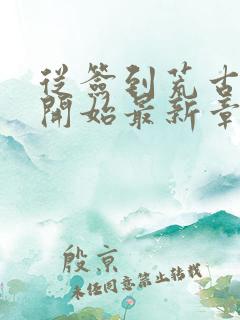 從簽到荒古
開始最新章
殷京
未經同意禁止轉載